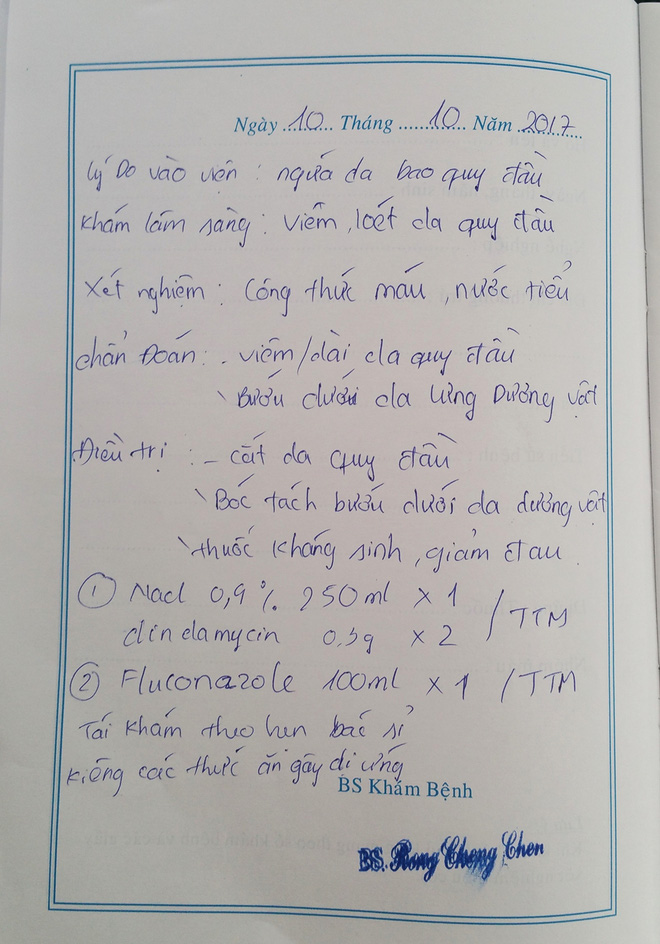 Ngày 10 Tháng 10 Năm 2017
Lý Do vào viện : ngứa da bao quy đầu
Khám lâm sàng : Viêm, loét da quy đầu
Xét nghiệm : Công thức máu, nước tiểu
chẩn Đoán : - viêm/dài da quy đầu
\ Bướu dưới da lưng Dương vật
Điều trị : - cắt da quy đầu
\ Bóc tách bướu dưới da dương vật
\ thuốc kháng sinh, giảm đau.
① Nacl 0,9% 250ml x 1 / TTM
clindamycin 0,3g x 2
② Fluconazole 100ml x 1 / TTM
Tái khám theo hẹn bác sĩ
Kiêng các thức ăn gây dị ứng
BS Khám Bệnh
BS. Rong Cheng Chen